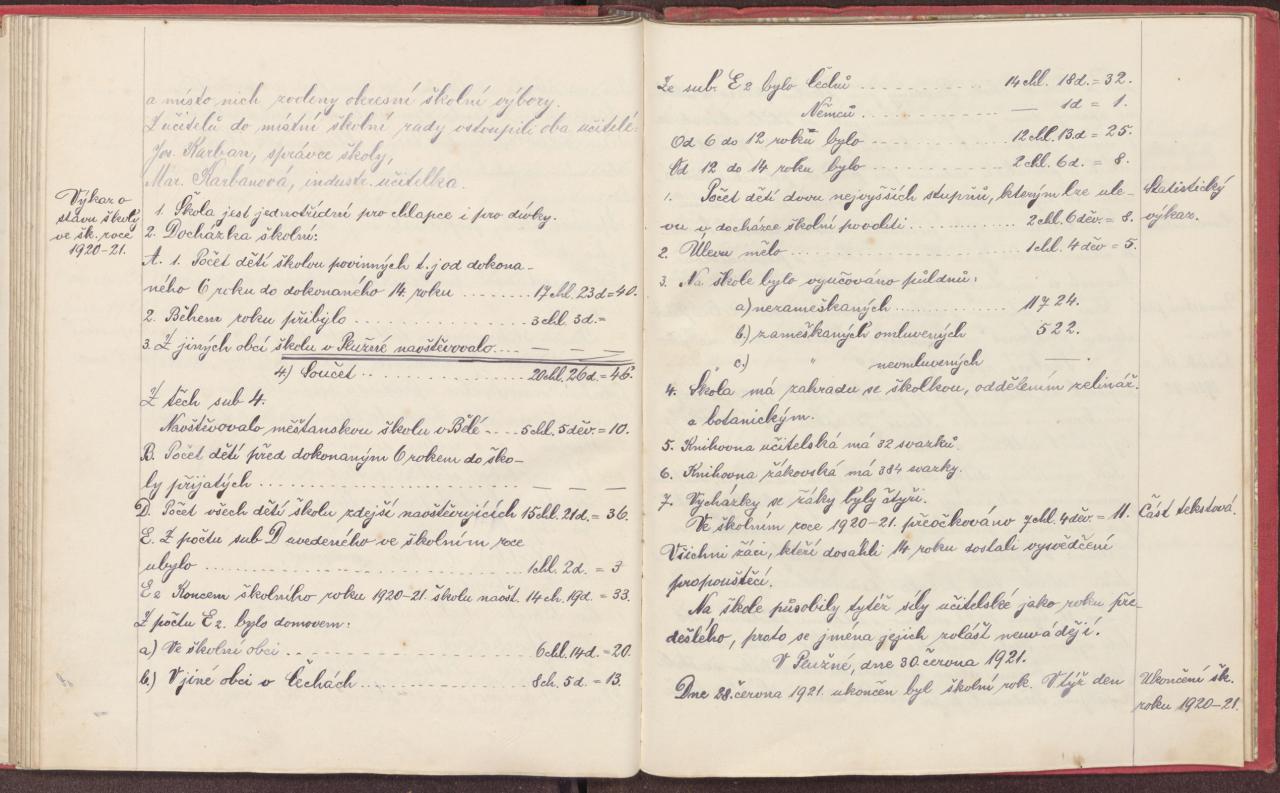 a místo nich zvoleny okresní školní výbory.
Z učitelů do místní školní rady vstoupili oba učitelé:
Jos. Karban, správce školy,
Mar. Karbanová, industr. učitelka.
Výkaz o
stavu školy
ve šk. roce
1920-21.
1. Škola jest jednotřídní pro chlapce i pro dívky.
2. Docházka školní:
A. 1. Počet dětí školou povinných t. j. od dokona-
ného 6 roku do dokonaného 14. roku ........ 17 chl. 23 d = 40.
2. Během roku přibylo .................... 3 chl. 3 d. =
3. Z jiných obcí školu v Plužné navštěvovalo.... — — —
4) Součet ................. 20 chl. 26 d. = 46.
Z těch sub 4.
Navštěvovalo měšťanskou školu v Bělé .... 5 chl. 5 děv. = 10.
B. Počet dětí před dokonaným 6 rokem do ško-
ly přijatých ........................ — — —
D. Počet všech dětí školu zdejší navštěvujících 15 chl. 21 d. = 36.
E. Z počtu sub D uvedeného ve školním roce
ubylo ........................ 1 chl. 2 d. = 3
E2 Koncem školního roku 1920-21. školu navšt. 14 ch. 19 d. = 33.
Z počtu E2. bylo domovem:
a) Ve školní obci ..................... 6 chl. 14 d. = 20.
b.) V jiné obci v Čechách .............. 8 ch. 5 d. = 13.
Ze sub. E2 bylo Čechů ............ 14 chl. 18 d. = 32.
Němců ............ — 1 d = 1.
Od 6 do 12 roků bylo ............ 12 chl. 13 d. = 25.
Od 12 do 14 roku bylo ............ 2 chl. 6 d. = 8.
1. Počet dětí dvou nejvyšších stupňů, kterým lze úle-
vu v docházce školní povoliti ........... 2 chl. 6 děv. = 8.
Statistický
výkaz.
2. Úlevu mělo ..................... 1 chl. 4 děv = 5.
3. Na škole bylo vyučováno půldnů:
a) nezameškaných ............ 11724.
b.) zameškaných omluvených 522.
c.) " neomluvených —.
4. Škola má zahradu se školkou, oddělením zelinář.
a botanickým.
5. Knihovna učitelská má 32 svazků.
6. Knihovna žákovská má 384 svazky.
7. Vycházky se žáky byly čtyři.
Ve školním roce 1920-21. přeočkováno 7 chl. 4 děv. = 11.
Část tekstová.
Všichni žáci, kteří dosáhli 14 roku dostali vysvědčení
propouštěcí.
Na škole působily tytéž síly učitelské jako roku pře-
dešlého, proto se jména jejich zvlášť neuvádějí.
V Plužné, dne 30. června 1921.
Dne 28. června 1921. ukončen byl školní rok. V týž den
Ukončení šk.
roku 1920-21.